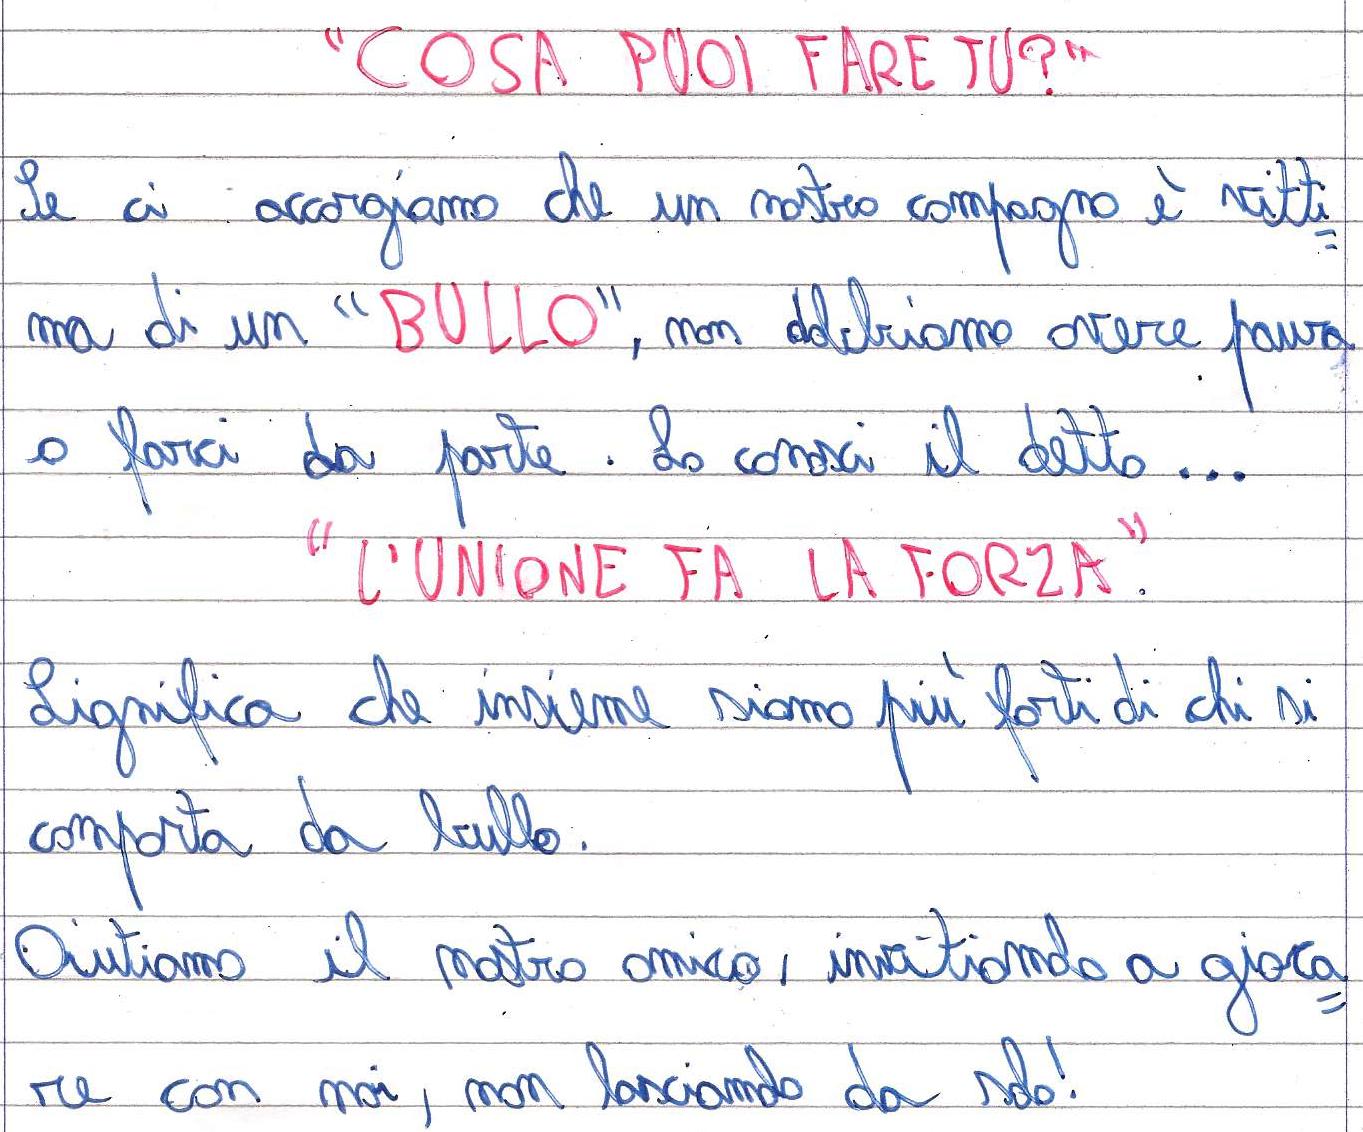 "COSA PUOI FARE TU?"
Se ci accorgiamo che un nostro compagno è vitti=
ma di un "BULLO", non dobbiamo avere paura
o farci da parte. Lo conosci il detto...
"L'UNIONE FA LA FORZA".
Significa che insieme siamo più forti di chi si
comporta da bullo.
Aiutiamo il nostro amico, invitiamolo a gioca=
re con noi, non lasciamolo da solo!